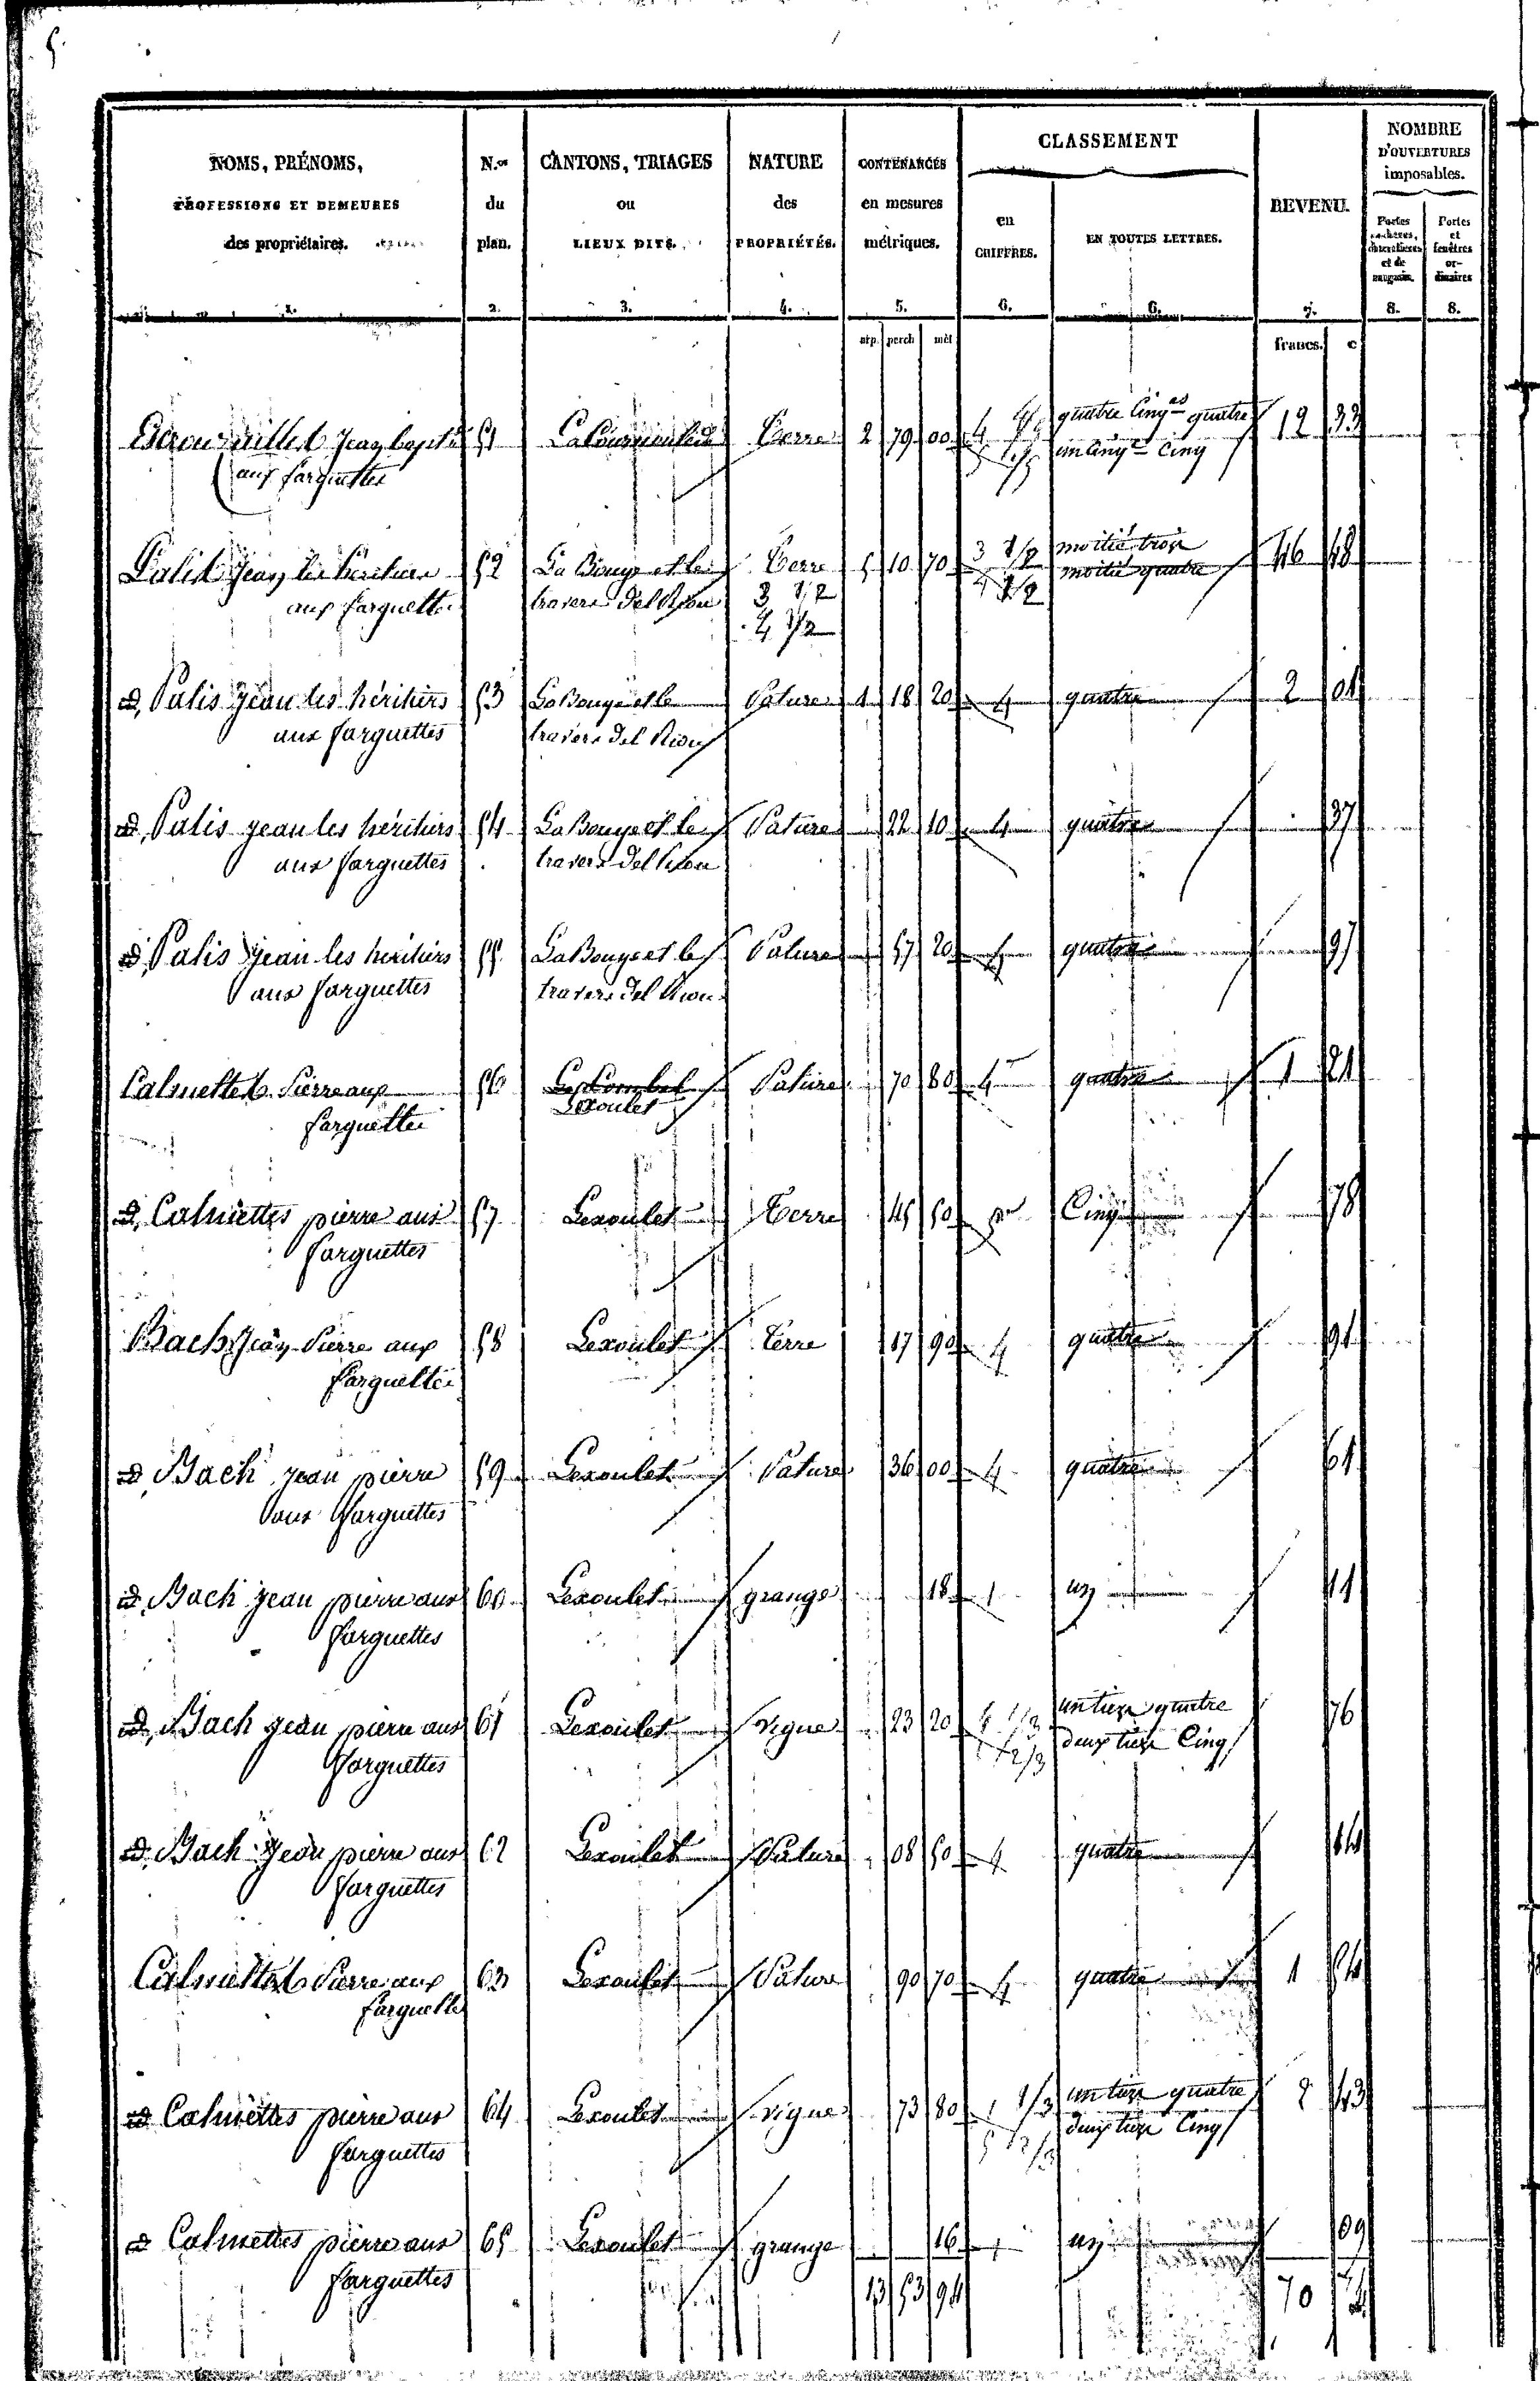 5.
NOMS, PRÉNOMS, PROFESSIONS ET DEMEURES des propriétaires. 1.
N.os du plan. 2.
CANTONS, TRIAGES ou LIEUX DITS. 3.
NATURE des PROPRIÉTÉS. 4.
CONTENANCES en mesures métriques. 5.
CLASSEMENT
en CHIFFRES. 6.
EN TOUTES LETTRES. 6.
REVENU. 7.
NOMBRE D'OUVERTURES imposables.
Portes cochères, charretières et de magasin. 8.
Portes et fenêtres ordinaires 8.
arp. perch mèt francs. c
jean baptis 51 Terre 2 79 00 4 4/5 quatre cinq.es quatre 12 33
aux farguettes 5 1/5 un cinq.e cinq
Palis jean les héritiers 52 La Bouye et le Terre 5 10 70 3 1/2 moitié trois 46 48
aux farguettes travers del Riou 3 1/2 4 1/2 moitié quatre
4 1/2
d. Palis jean les héritiers 53 La Bouye et le Pature 1 18 20 4 quatre 2 01
aux farguettes travers del Riou
d. Palis jean les héritiers 54 La Bouye et le Pature 22 10 4 quatre 37
aux farguettes travers del Riou
d. Palis jean les héritiers 55 La Bouye et le Pature 57 20 4 quatre 97
aux farguettes travers del Riou
Calmettes Pierre aux 56 Pature 70 80 4 quatre 1 21
farguettes Lexoulet
d. Calmettes pierre aux 57 Lexoulet Terre 45 50 5 Cinq 78
farguettes
Bach Jean Pierre aux 58 Lexoulet Terre 17 90 4 quatre 91
farguettes
d. Bach jean pierre 59 Lexoulet Pature 36 00 4 quatre 61
aux farguettes
d. Bach jean pierre aux 60 Lexoulet grange 18 1 un 11
farguettes
d. Bach jean pierre aux 61 Lexoulet vigne 23 20 4 1/3 un tiers quatre 76
farguettes 5 2/3 deux tiers Cinq
d. Bach jean pierre aux 62 Lexoulet Pature 08 50 4 quatre 14
farguettes
Calmettes Pierre aux 63 Lexoulet Pature 90 70 4 quatre 1 54
farguettes
d. Calmettes pierre aux 64 Lexoulet vigne 73 80 4 1/3 un tiers quatre 2 43
farguettes 5 2/3 deux tiers Cinq
d. Calmettes pierre aux 65 Lexoulet grange 16 1 un 09
farguettes
13 53 94 70